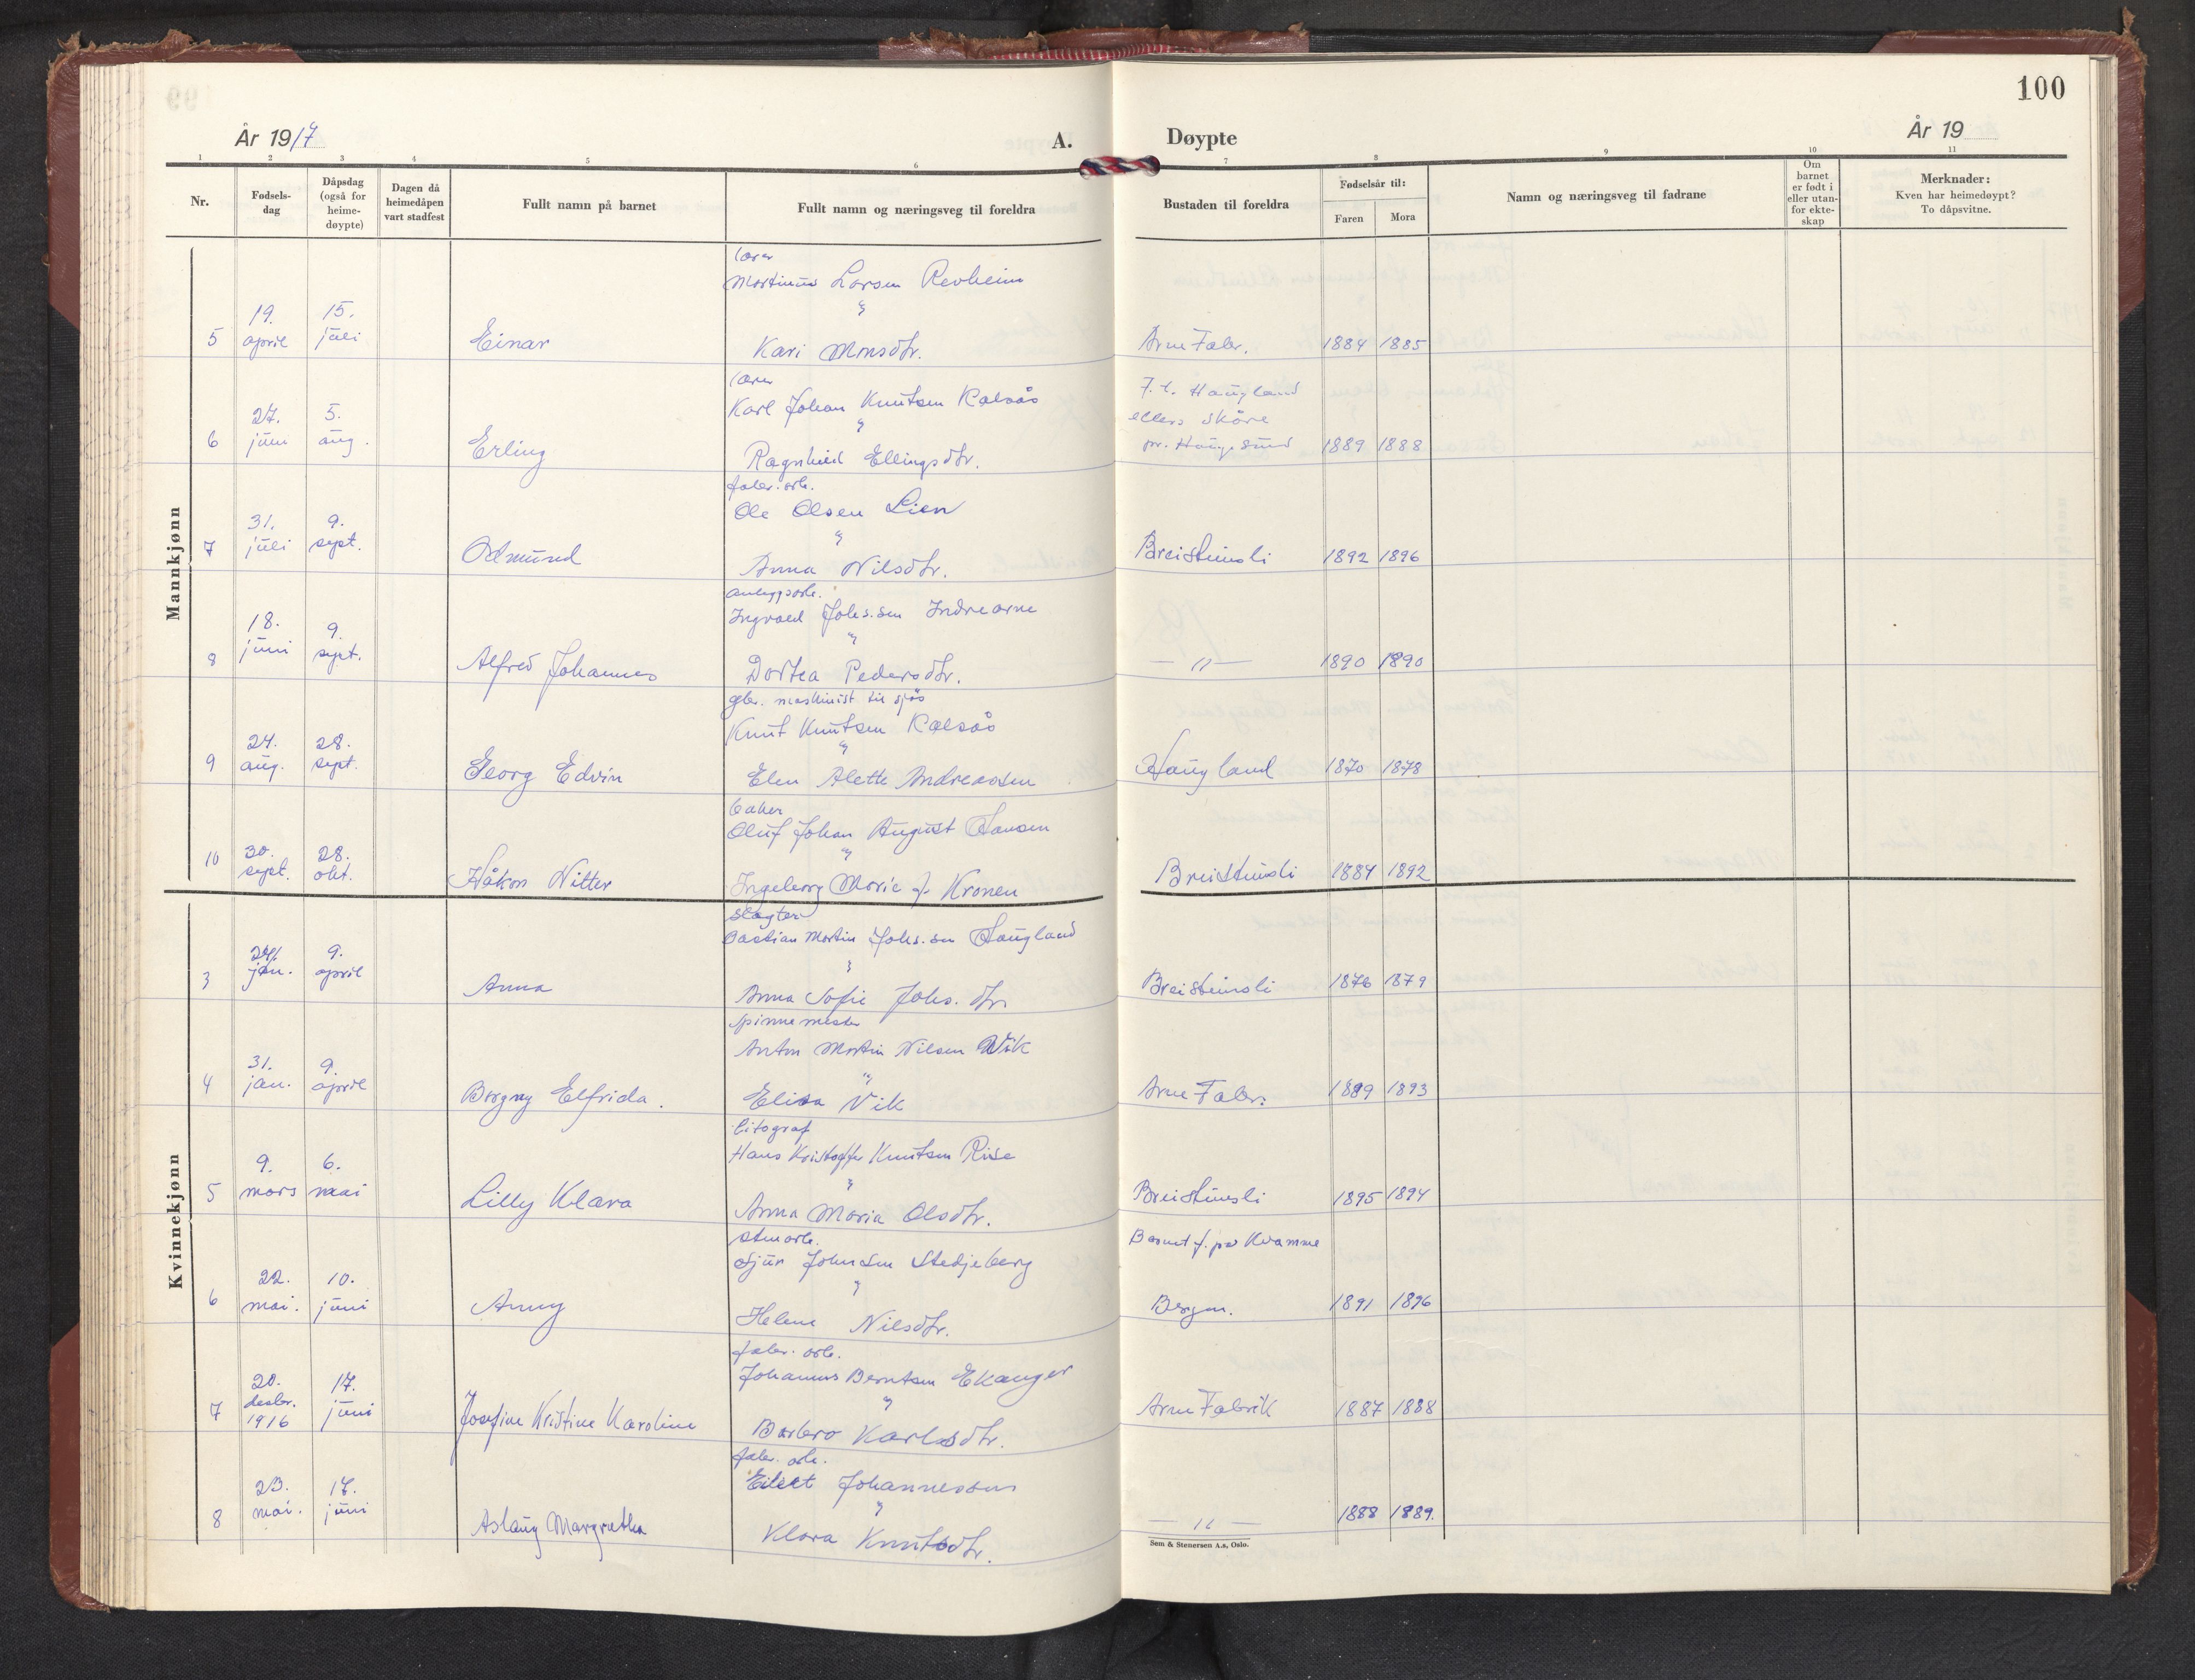 100
År 1917
A.
Døypte
År 19
1 2 3 4 5 6 7 8 9 10 11
Nr.
Fødsels-
dag
Dåpsdag
(også for
heime-
døypte)
Dagen då
heimedåpen
vart stadfest
Fullt namn på barnet
Fullt namn og næringsveg til foreldra
Bustaden til foreldra
Fødselsår til:
Faren Mora
Namn og næringsveg til fadrane
Om
barnet
er født i
eller utan-
for ekte-
skap
Merknader:
Kven har heimedøypt?
To dåpsvitne.
Mannkjønn
lærer
Martinus Larsen Revheim
"
5 19. april 15. juli Einar Kari Monsdtr. Arne Fabr. 1884 1885
lærer
Karl Johan Knutsen Kalsås
"
6 27. juni 5. aug. Erling Ragnhild Ellingsdtr.
F. t. Haugland
ellers Skåre
pr. Haugesund 1889 1888
fabr. arb.
Ole Olsen Lien
"
7 31. juli 9. sept. Odmund Anna Nilsdtr. Breistinsli 1892 1896
anleggsarb.
Ingvald Johs.sen Indrearne
"
8 18. juni 9. sept. Alfred Johannes Dortea Pedersdtr. — " — 1890 1890
gbr. maskinist til sjøs
Knut Knutsen Kalsås
"
9 24. aug. 28. sept. Georg Edvin Elen Alette Andreassen Haugland 1870 1878
baker
Oluf Johan August Hansen
"
10 30. sept. 28. okt. Håkon Nitter Ingeborg Marie f. Kronen Breistinsli 1884 1892
Kvinnekjønn
slagter
Bastian Martin Johs.sen Haugland
"
3 24. jan. 9. april Anna Anna Sofie Johs.dtr. Breistinsli 1876 1879
spinnemester
Anton Martin Nilsen Vik
"
4 31. jan. 9. april Borgny Elfrida. Elisa Vik Arne Fabr. 1889 1893
litograf
Hans Kristoffer Knutsen Rise
"
5 9. mars 6. mai Lilly Klara Anna Maria Olsdtr. Breistinsli 1895 1894
stenarb.
Sjur Johnsen Stedjeberg
"
Barnet f. på Kvamme
6 22. mai. 10. juni Anny Helene Nilsdtr. Bergen. 1891 1896
fabr. arb.
Johannes Berntsen Ekanger
"
7 20. desbr. 1916 17. juni Josefine Kristine Karoline Barbro Karlsdtr. Arne Fabrik 1887 1888
fabr. arb.
Eilert Johannessen
"
8 23. mai. 17. juni Aslaug Margretha Klara Knutsdtr. — " — 1888 1889.
Sem & Stenersen A.s, Oslo.